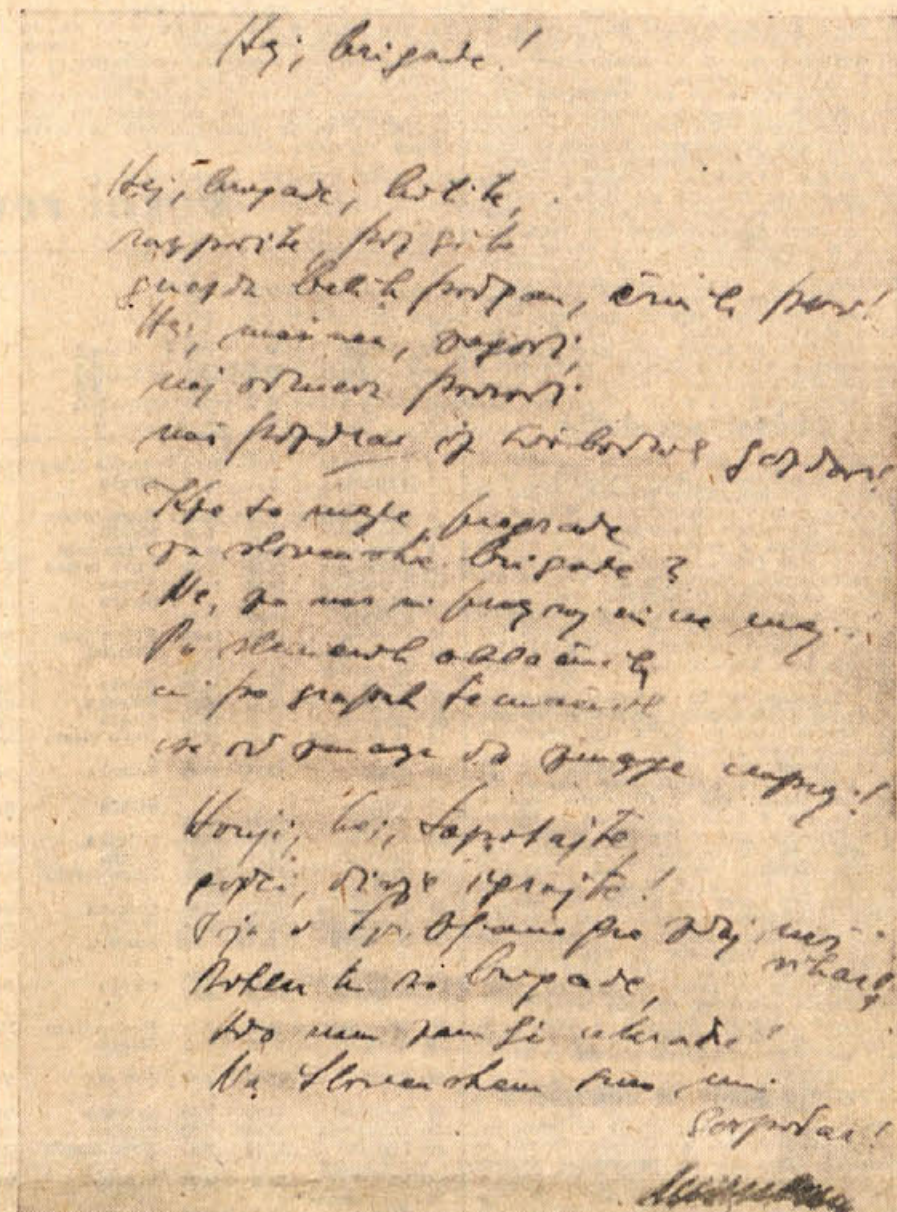 Hej, brigade!
Hej, brigade, hitite,
razpodite, požgite
gnezda belih podgan, črnih psov!
Hej, mašinca, zagodi,
naj odmeva povsodi
naš pozdrav iz svobodnih gozdov!
Kje so meje, pregrade
za slovenske brigade?
Ne, za nas ni pregraj in ne mej...
Po slemenih oblačnih
in po grapah temačnih
vse od zmage do zmage naprej!
Konji, hej, topotajte,
divje igrajte!
Tja v zdaj naš
vihar!
Dokler te so brigade,
kdo nam zemljo ukrade!
Na Slovenskem smo mi
gospodar!